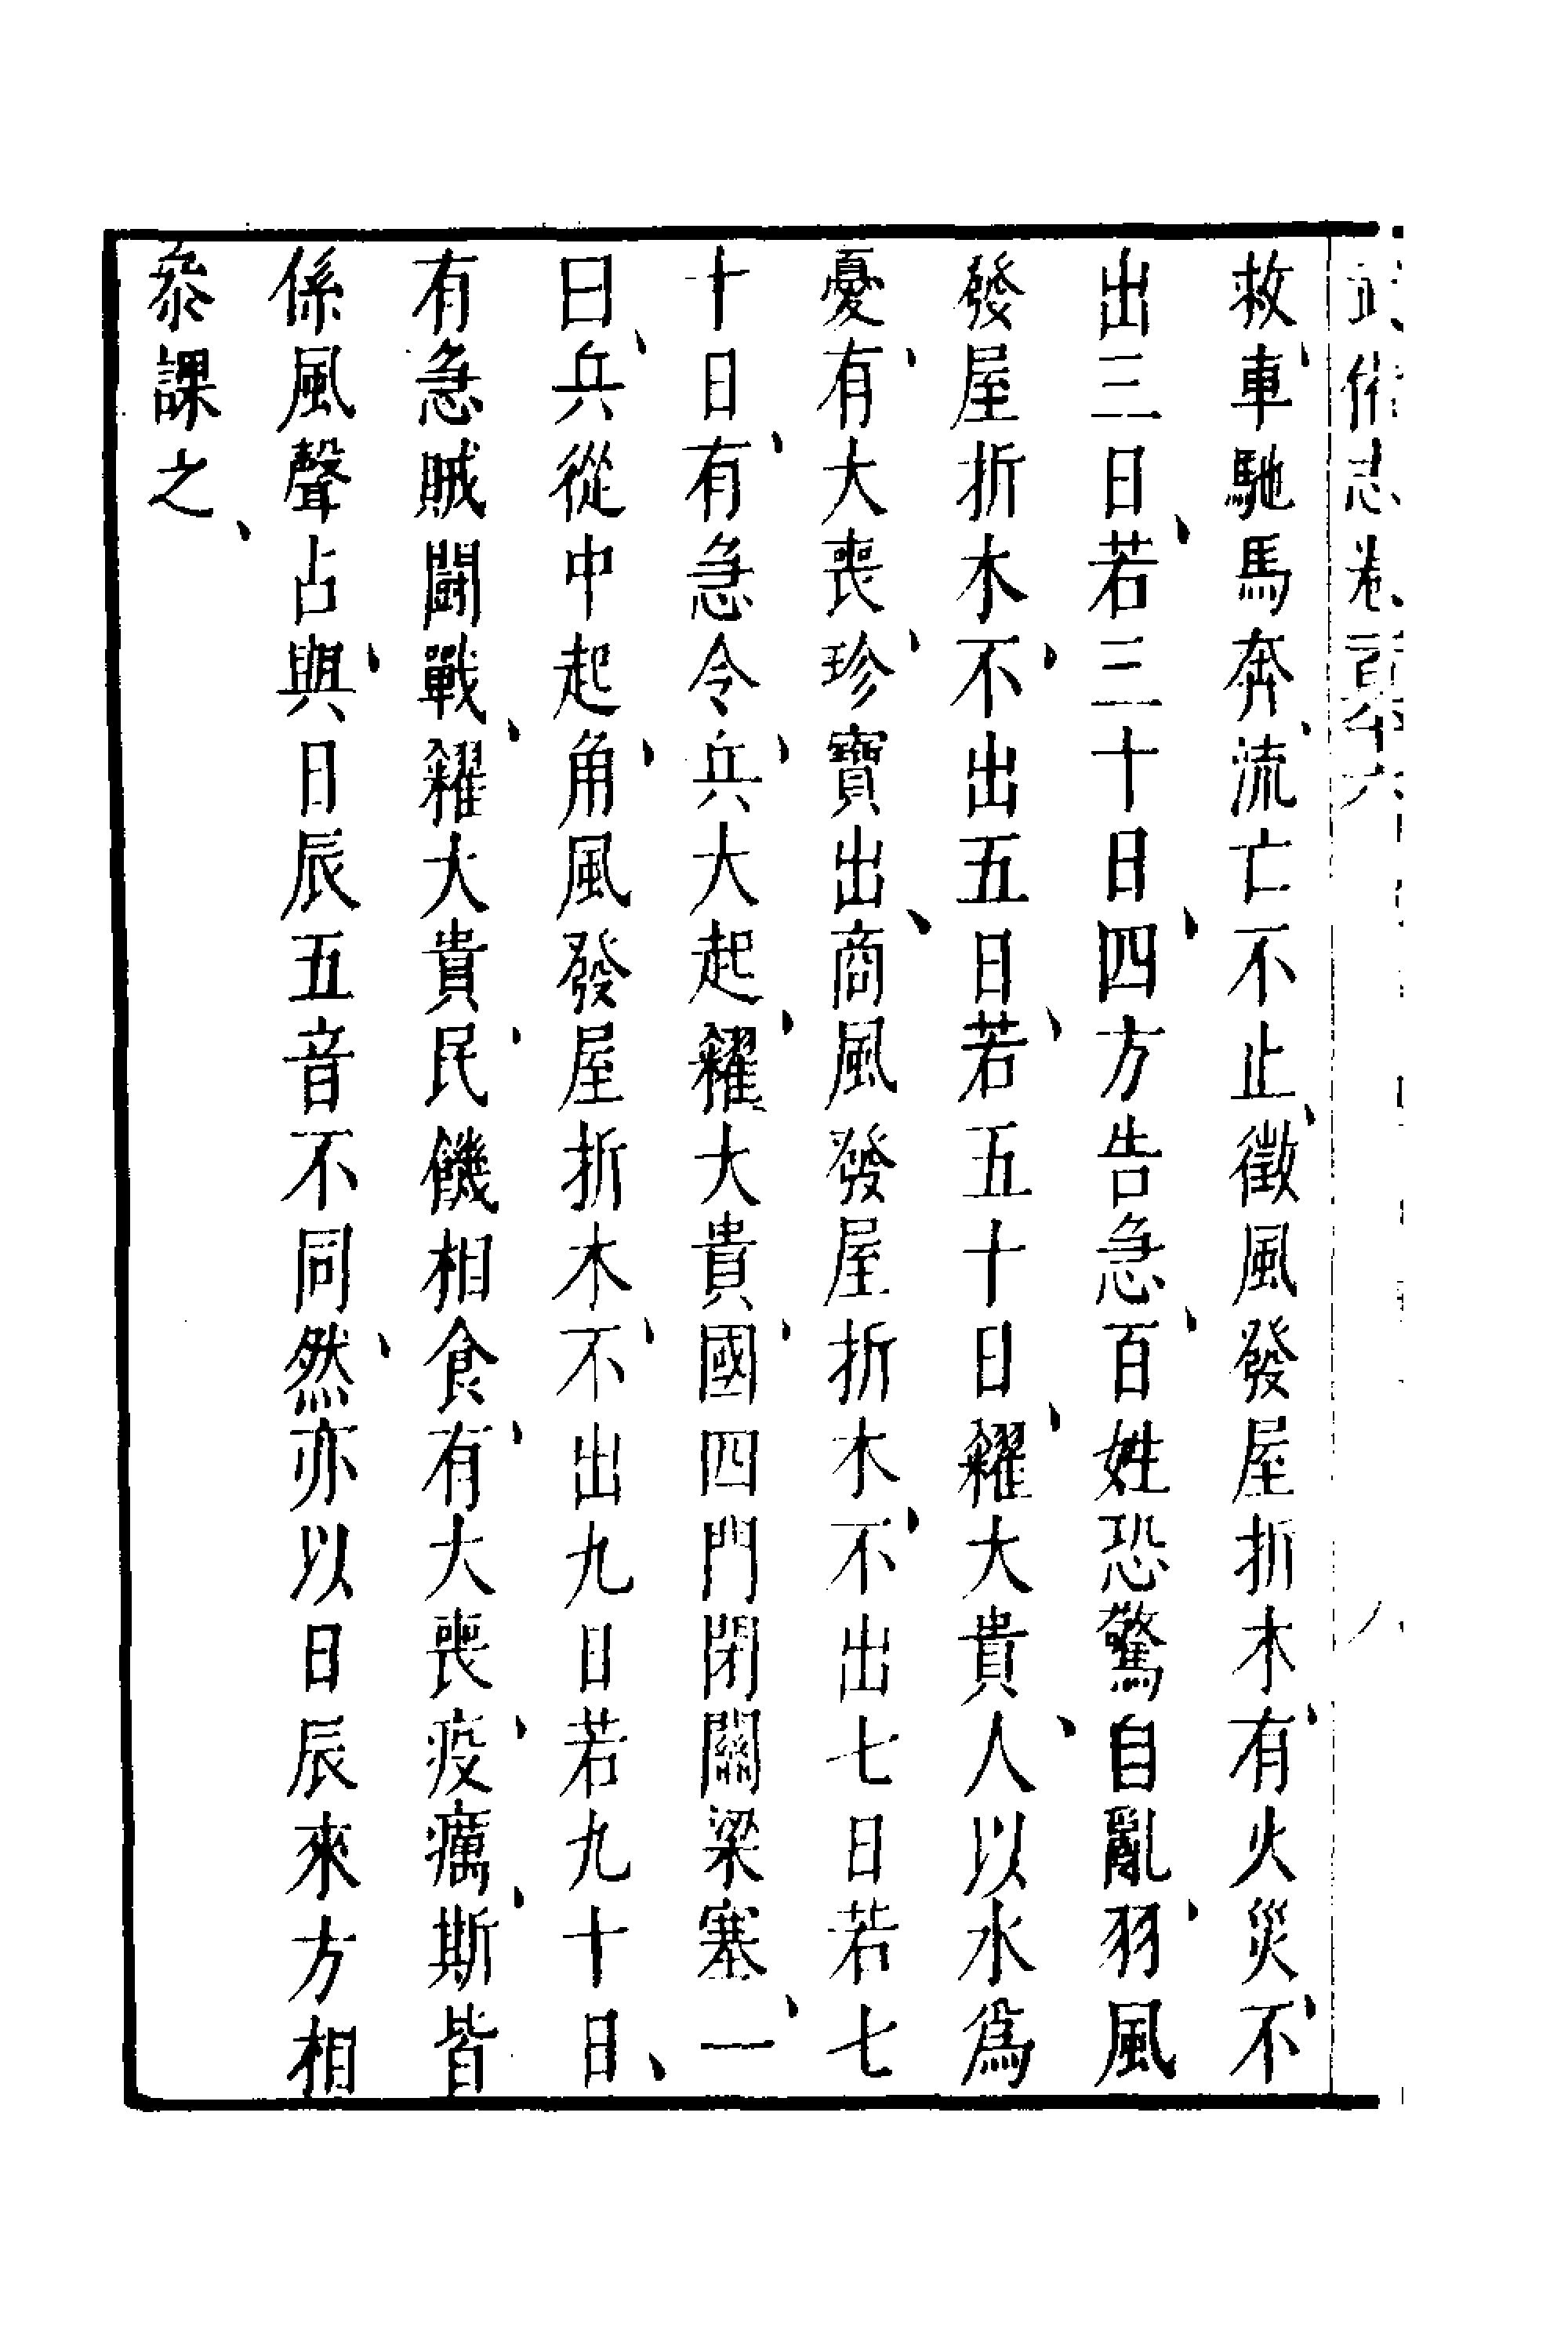 救車馳馬奔流亡不止徵風發屋折木有火災不
出三日若三十日四方告急百姓恐驚自亂羽風
發屋折木不出五日若五十日糴大貴人以水爲
憂有大喪珍寶出商風發屋折木不出七日若七
十日有急令兵大起糴大貴國四門閉關梁塞一
曰兵從中起角風發屋折木不出九日若九十日
有急賊鬪戰糴大貴民饑相食有大喪疫癘斯皆
係風聲占與日辰五音不同然亦以日辰來方相
叅課之